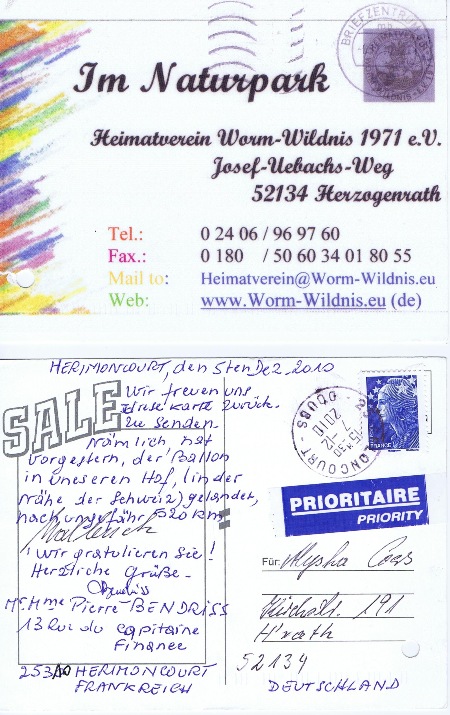 BRIEFZENTRUM
Im Naturpark
Heimatverein Worm-Wildnis 1971 e.V.
Josef-Uebachs-Weg
52134 Herzogenrath
Tel.: 0 24 06 / 96 97 60
Fax.: 0 180 / 50 60 34 01 80 55
Mail to: Heimatverein@Worm-Wildnis.eu
Web: www.Worm-Wildnis.eu (de)
HERIMONCOURT, den 5ten Dez. 2010
SALE
Wir freuen uns
diese Karte zurück
zu senden.
Nämlich hat
vorgestern, der Ballon
in unseren Hof, (in der
Nähe der Schweiz) gelandet,
nach ungefähr 520 km.
Wir gratulieren Sie!
Herzliche Grüße.
Mr. Mme Pierre BENDRISS
13 Rue du Capitaine
Finance
HERIMONCOURT
FRANKREICH
DOUBS
7-12
2010
FRANCE
PRIORITAIRE
PRIORITY
Für:
191
H'rath
52134
DEUTSCHLAND